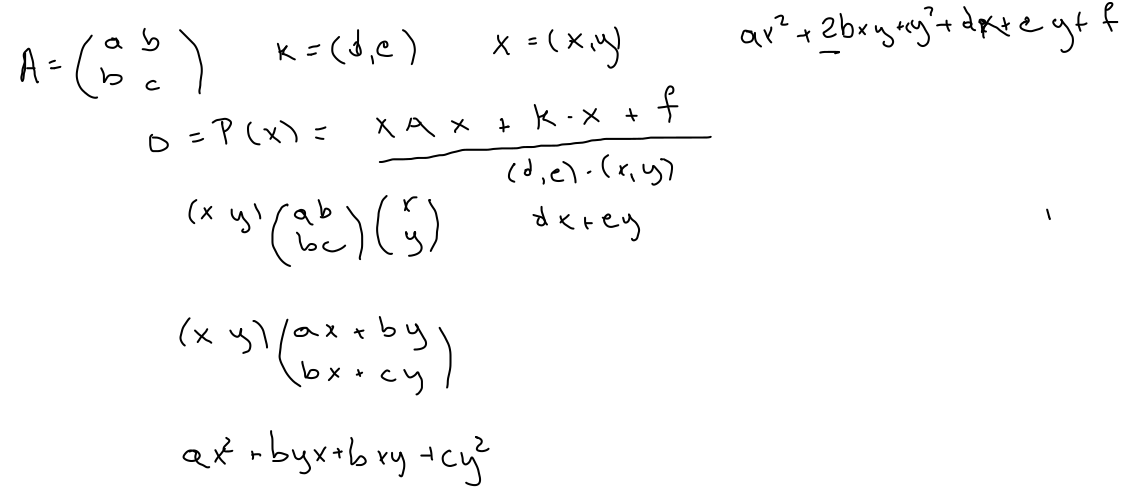 A = ( a b
b c ) k = (d,e) x = (x,y) ax² + 2bxy + cy² + dx + ey + f
0 = P(x) = x A x + k · x + f
(d,e) · (x,y)
(x y) ( a b
b c ) ( x
y ) dx + ey
(x y) ( ax + by
bx + cy )
ax² + byx + bxy + cy²